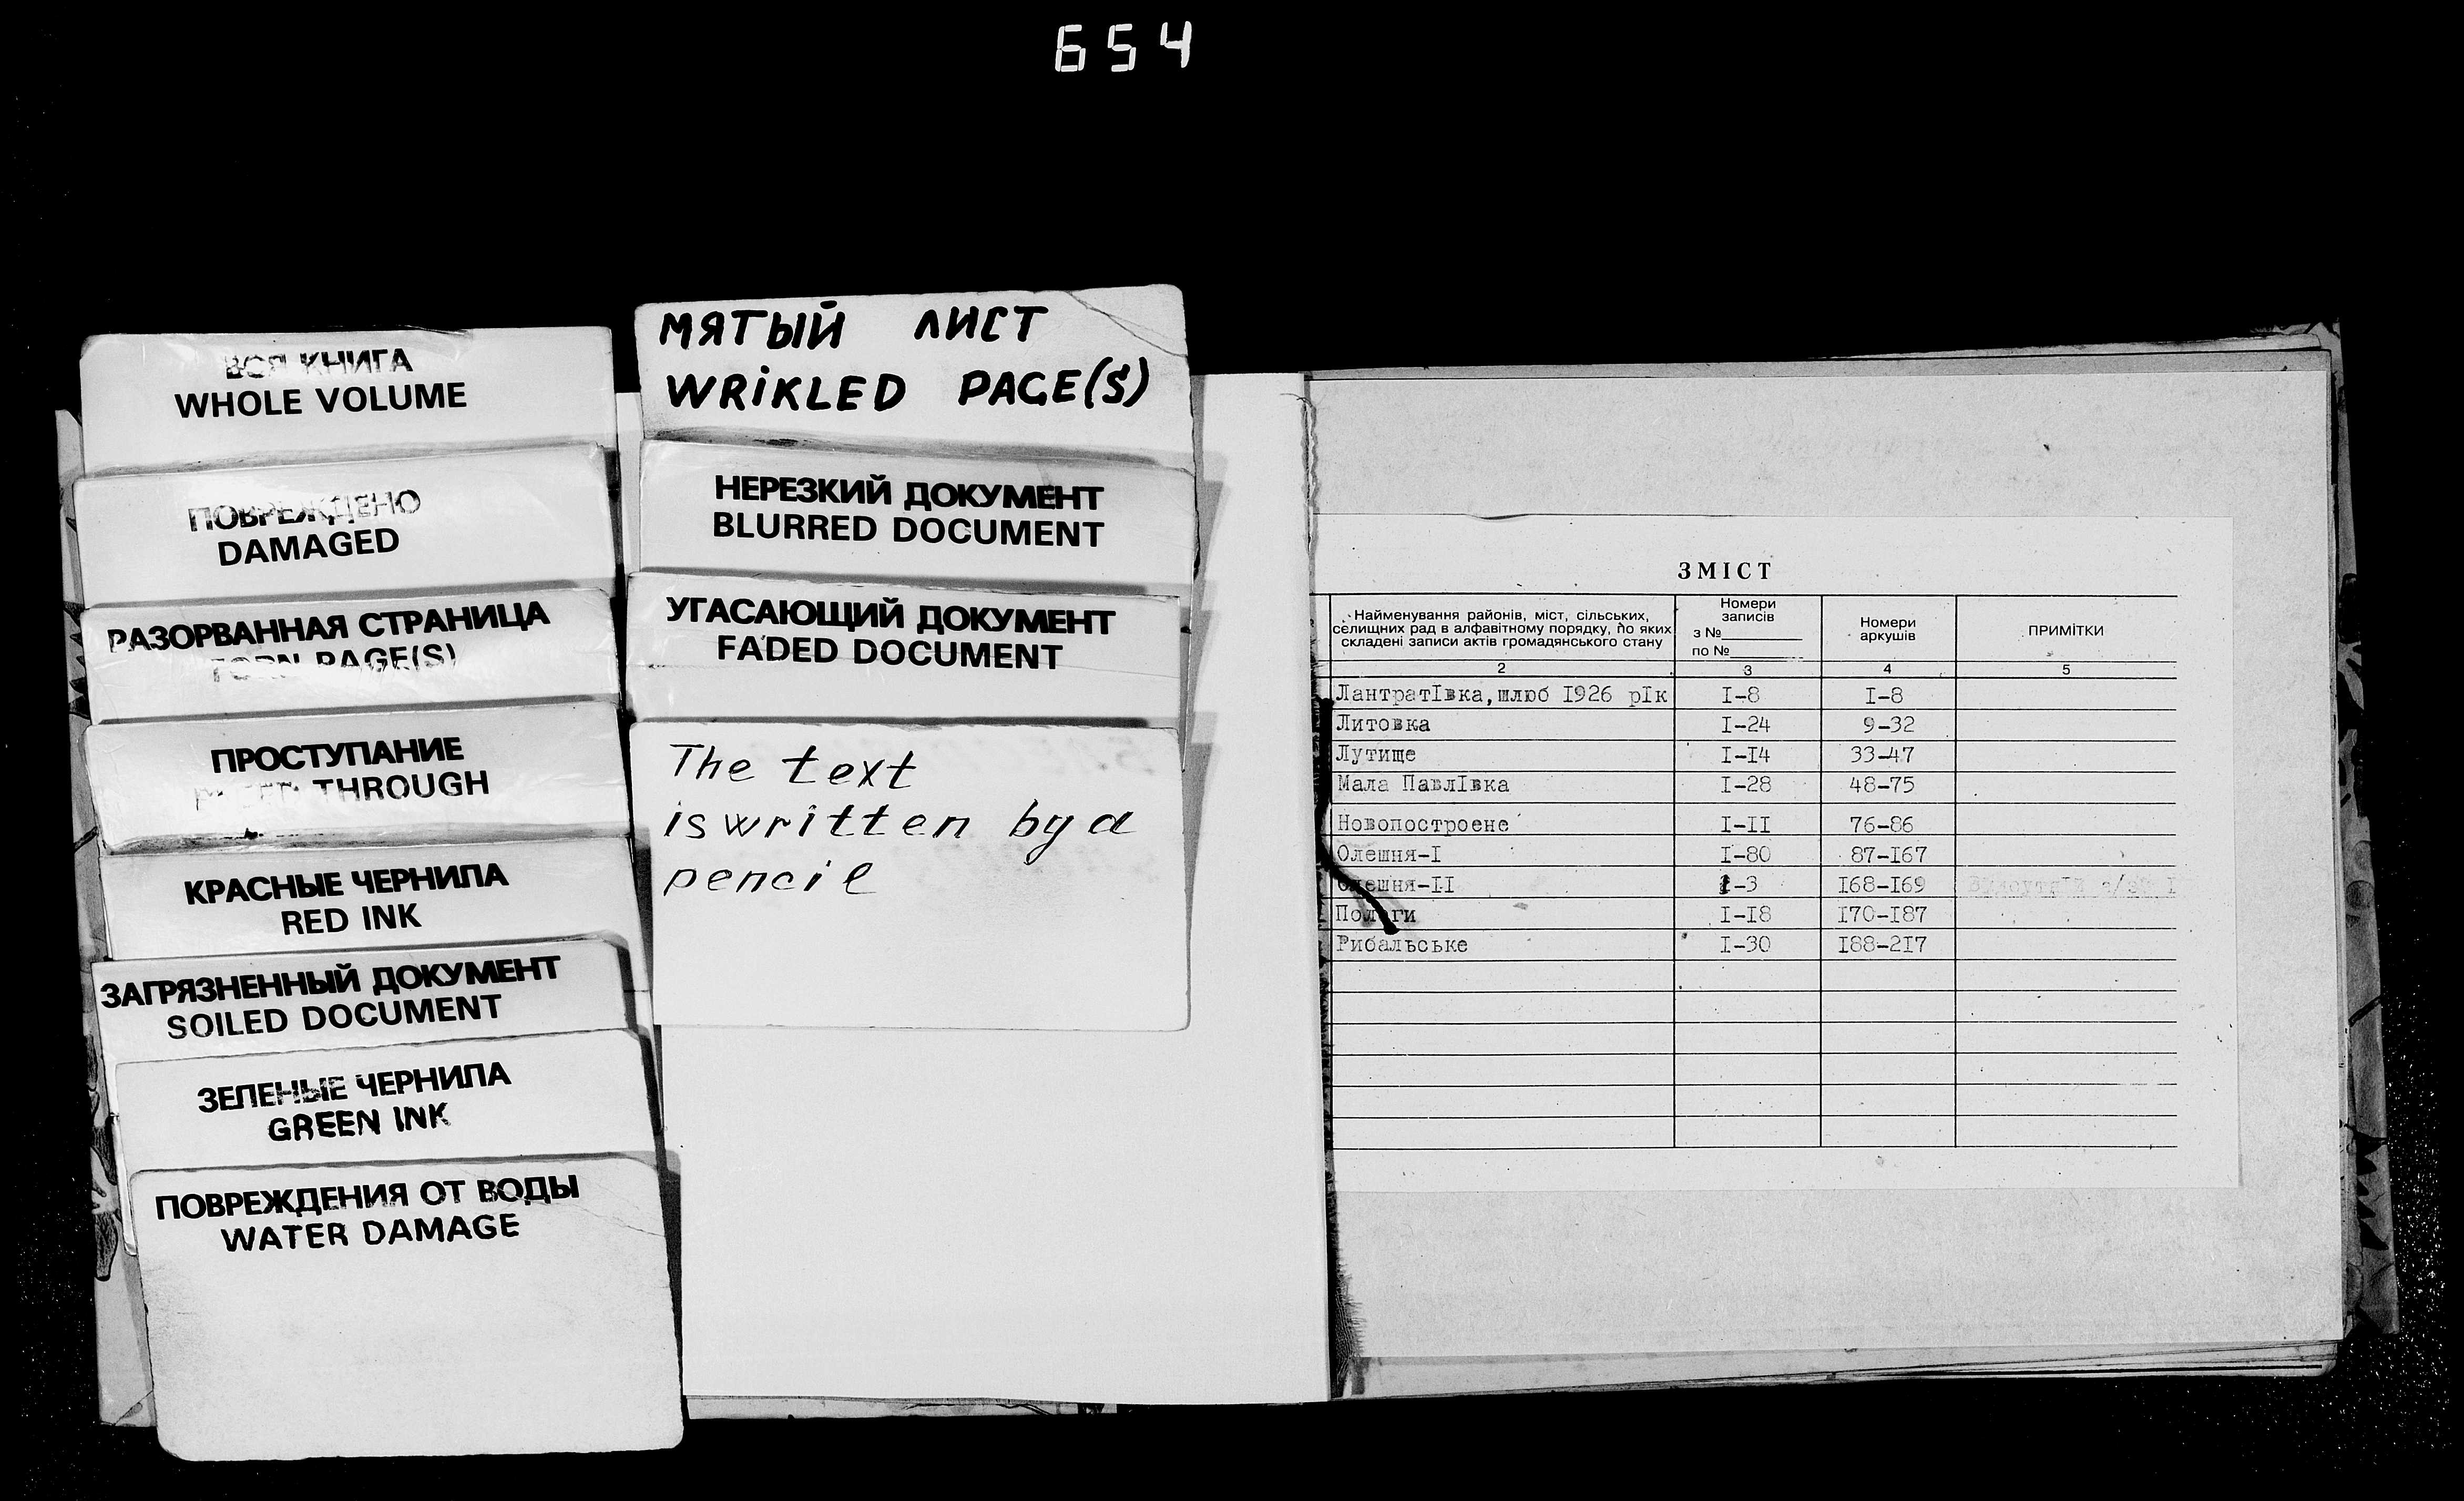 654
ВСЯ КНИГА
WHOLE VOLUME
ПОВРЕЖДЕНО
DAMAGED
РАЗОРВАННАЯ СТРАНИЦА
TORN PAGE(S)
ПРОСТУПАНИЕ
THROUGH
КРАСНЫЕ ЧЕРНИЛА
RED INK
ЗАГРЯЗНЕННЫЙ ДОКУМЕНТ
SOILED DOCUMENT
ЗЕЛЕНЫЕ ЧЕРНИЛА
GREEN INK
ПОВРЕЖДЕНИЯ ОТ ВОДЫ
WATER DAMAGE
МЯТЫЙ ЛИСТ
WRIKLED PAGE(S)
НЕРЕЗКИЙ ДОКУМЕНТ
BLURRED DOCUMENT
УГАСАЮЩИЙ ДОКУМЕНТ
FADED DOCUMENT
The text
is written by a
pencil
ЗМІСТ
Найменування районів, міст, сільських,
селищних рад в алфавітному порядку, по яких
складені записи актів громадянського стану
Номери
записів
з №
по №
Номери
аркушів
ПРИМІТКИ
2 3 4 5
ЛантратІвка,шлюб I926 рІк I-8 I-8
Литовка I-24 9-32
Лутище I-I4 33-47
Мала ПавлІвка I-28 48-75
Новопостроене I-II 76-86
Олешня-I I-80 87-I67
Олешня-II I-3 I68-I69
Пологи I-I8 I70-I87
Рибальське I-30 I88-2I7